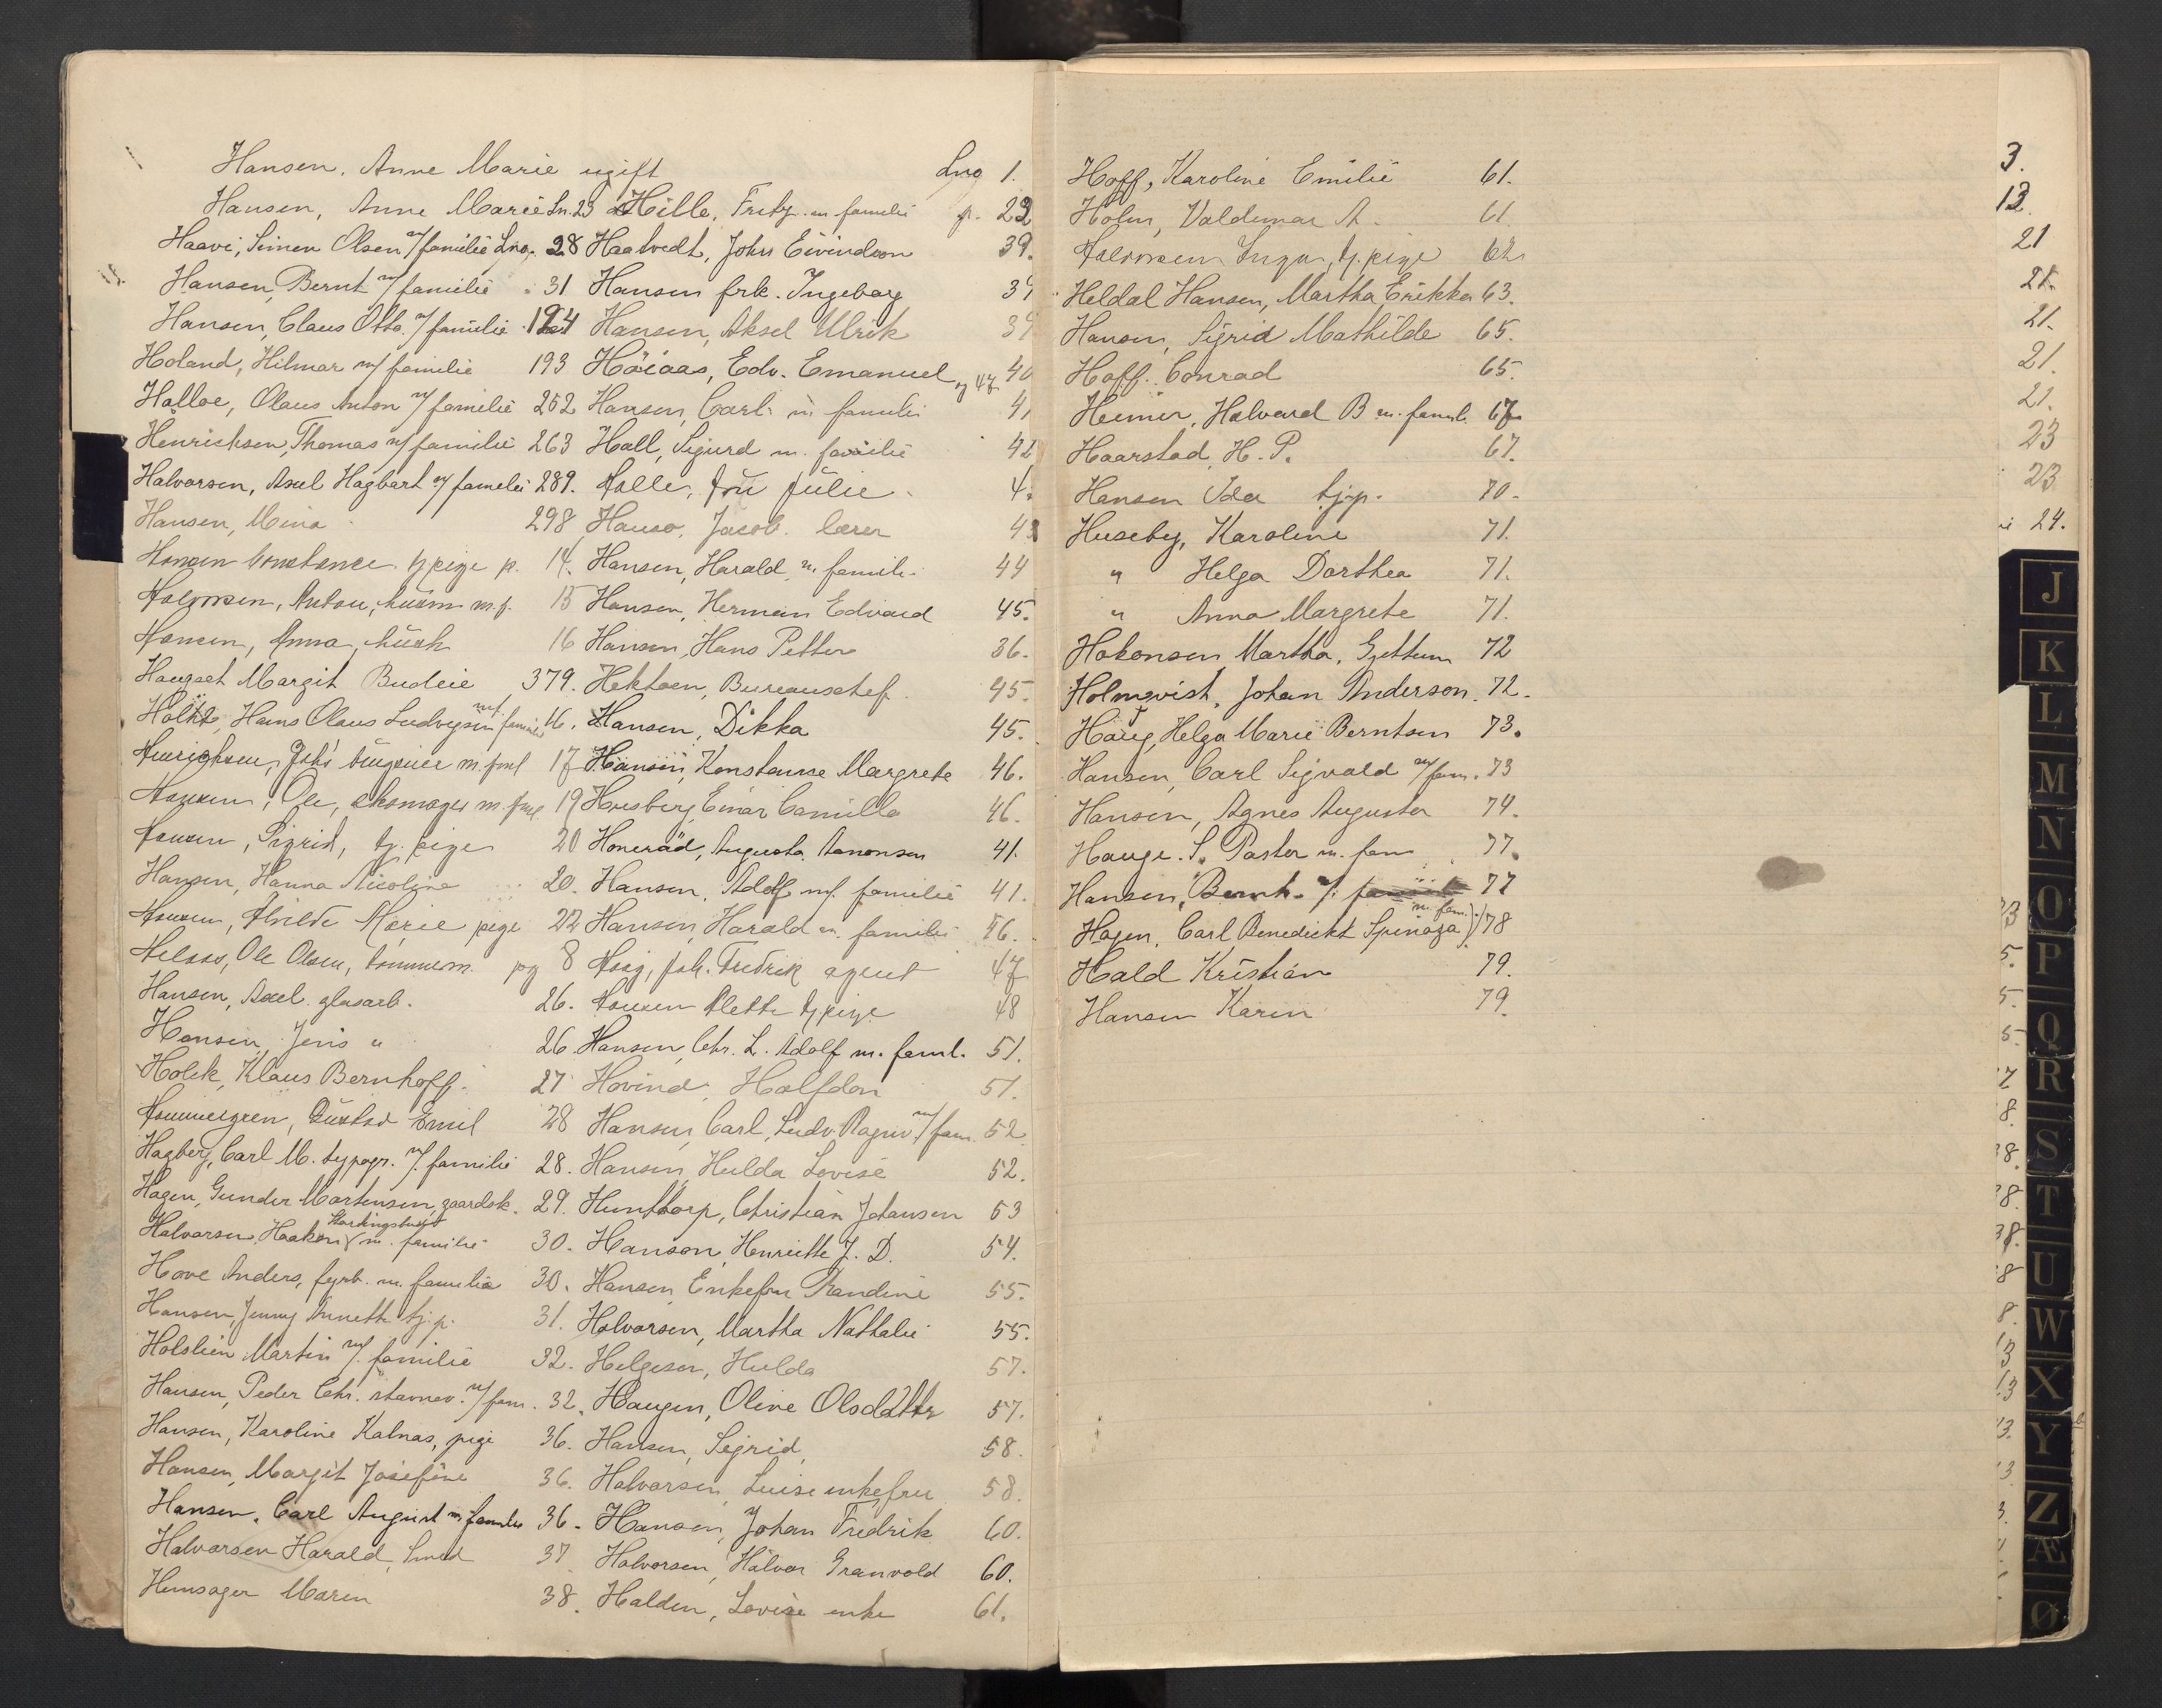 Hansen, Anne Marie ugift Lno 1.
Hansen, Anne Marie Ln. 23
Haavi, Simen Olsen m/familie Lno. 28
Hansen, Bernt m/familie 31
Hansen, Claus Otto m/familie 194
Holand, Hilmar m/familie 193
Halloe, Olaus Anton m/familie 252
Henrichsen, Thomas m/familie 263
Halvorsen, Axel Hagbart m/familie 289.
Hansen, Mina 298
Hansen Constance tj.pige p. 14.
Halvorsen, Anton, husm. m.f. 15
Hansen, Anna, hush. 16
Haugset Margit Budeie 379.
Hans Olaus Ludvigsen m/familie 16.
Henrichsen, Johs m.fml 17
Hansen, Ole, skomager m.fml. 19
Hansen, Sigrid, tj. pige 20
Hansen, Hanna Nicoline 20.
Hansen, Alvilde Marie pige 22
Ole Olsen, tømmerm. pg 8
Hansen, Axel. glasarb. 26.
Hansen, Jens " 26
Holck, Klaus Bernhoff. 27
Hammergren, Gustav Emil 28
Hagberg, Carl M. typogr. m/. familie 28.
Hagen, Gunder Martinsen, gaardsk. 29.
Halvorsen, Haakon m. familie 30.
Hove Anders, fyrb. m. familie 30.
Hansen, Jenny Annette tj.p. 31.
Holstein Martin m/. familie 32.
Hansen, Peder Chr. m/fam. 32.
Hansen, Karoline Kalnas, pige 36.
Hansen, Margit Josefine 36.
Hansen, Carl August m. familie 36.
Halvorsen Harald, Smed 37
Hemsager Maren 38.
Hille, Fritz. m familie p. 22
Haatvedt, John Eivindson 39.
Hansen frk. Ingeborg 39
Hansen, Aksel Ulrik 39
Höiaas, Edv. Emanuel 40 og 47
Hansen, Carl. m familie 41
Hall, Sigurd m. familie 42
Halle, fru Julie.
Hauso, Jacob. lærer 43
Hansen, Harald m. famili. 44
Hansen, Herman Edvard 45.
Hansen, Hans Petter 36.
Hektoen, Bureauschef. 45.
Hansen, Dikka 45.
Hansen, Konstanse Margrete 46.
Einar Camillo 46.
Honeraad, Augusta Amonsen 41.
Hansen, Adolf m/. familie 41.
Hansen, Harald m. familie 46.
Haag, Joh. Fredrik agent 47
Hansen Alette tj pige 48
Hansen, Chr. L. Adolf m. faml. 51.
Hovind, Halfdan 51.
Hansen, Carl, Ludv. Ragnv. m/fam. 52.
Hansen, Hulda Lovise 52.
Hunttorp, Christian Johansen 53
Hanson, Henriette J. D. 54.
Hansen, Enkefru Randine 55.
Halvorsen, Martha Nathalie 55.
Helgesen, Hulda 57.
Haugen, Oline Olsdatter 57.
Hansen, Sigrid, 58.
Halvorsen, Luise enkefru 58.
Hansen, Johan Fredrik 60.
Halvorsen, Halvor Granvold 60.
Halden, Lovise enke 61.
Hoff, Karoline Emilie 61.
Holm, Valdemar A. 61
Halvorsen Inga, tj. pige 62
Heldal Hansen, Martha Erikka 63.
Hansen, Sigrid Mathilde 65.
Hoff. Conrad 65.
Heimer, Halvard B m. faml. 67
Haarstad, H. P. 67.
Hansen Ida tj.p. 70.
Huseby, Karoline 71.
" Helga Dorthea 71.
" Anna Margrete 71.
Hakonsen Martha, Gjettum 72
Holmqvist, Johan Anderson. 72.
Haug, Helga Marie Berntsen 73.
Hansen, Carl Sigvald m/fam. 73
Hansen, Agnes Augusta 74.
Hauge. S. Pastor m. fam 77.
Hansen, Bernh. 77
Hagen, Carl Benedickt Spinoza m. fam. 78
Hald Kristian 79.
Hansen Karin 79.
3.
12.
21
21.
21.
21.
21.
23
23
24.
J
K
L
M
N
O
P
Q
R
S
T
U
W
X
Y
Z
Æ
Ø